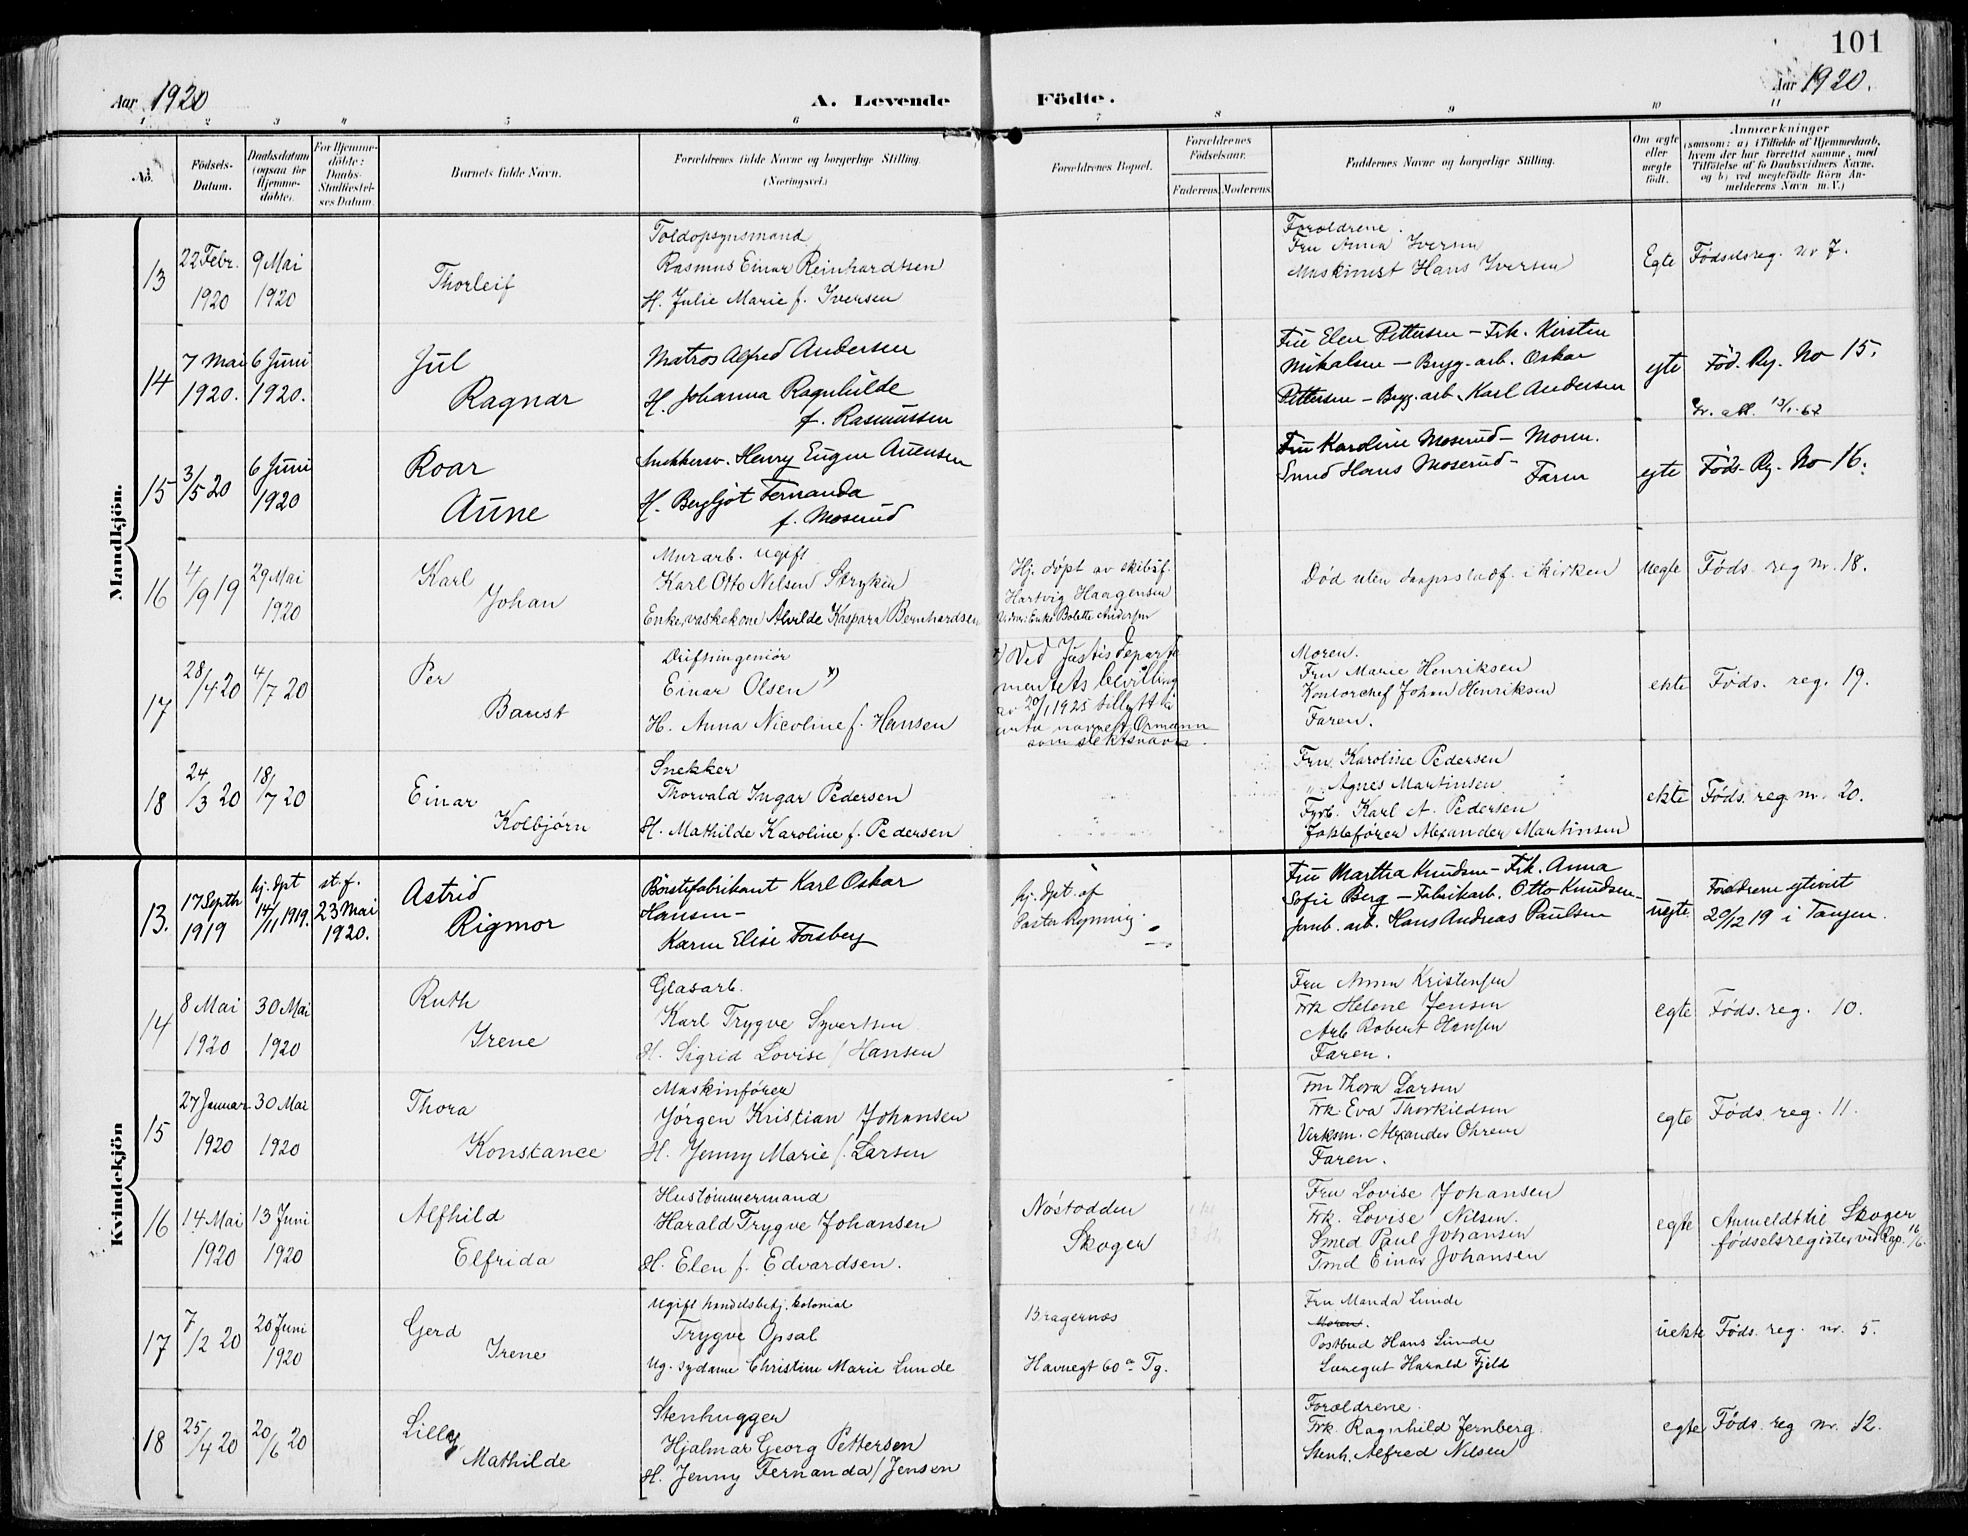 101
Aar 1920
A. Levende
Födte.
Aar 1920.
1 2 3 4 5 6 7 8 9 10 11
No.
Födsels-Datum.
Daabsdatum (ogsaa for Hjemme-döbte).
For Hjemme-döbte: Daabs-Stadfæstel-ses Datum.
Barnets fulde Navn.
Forældrenes fulde Navne og borgerlige Stilling.
(Næringsvei.)
Forældrenes Bopæl.
Forældrenes Födselsaar.
Faderens. Moderens.
Faddernes Navne og borgerlige Stilling.
Om ægte eller uægte födt.
Anmærkninger
(saasom: a) i Tilfælde af Hjemmedaab,
hvem der har forrettet samme, med
Tilföielse af to Daabsvidners Navne,
og b) ved uægtefödte Börn An-
melderens Navn m. V.)
Mandkjön.
13
22 Febr. 1920
9 Mai 1920
Thorleif
Toldopsynsmand
Rasmus Einar Reinhardtsen
H. Julie Marie f. Iversen
Foroldrene.
Fru Anna Iversen
Maskinist Hans Iversen
Egte
Fødselsreg. nr 7.
14
7 Mai 1920.
6 Juni 1920.
Jul
Ragnar
Matros Alfred Andersen
H. Johanna Ragnhilde
f. Rasmussen
Fru Elen Pettersen – Frk. Kirsten
Mikalsen – Bryg. arb. Oskar
Pettersen – Bryg. arb. Karl Andersen
egte
Fød. Rg. No 15.
13/1-62
15
3/5 20
6 Juni 1920
Roar
Aune
Snekkersv. Henry Eugen Auensen
H. Bergljot Fernanda
f. Moserud
Fru Karoline Moserud – Moren.
Smed Hans Moserud –
Faren
egte
Føds. Rg. No 16.
16
4/9 19
29 Mai 1920
Karl
Johan
Murarb. ugift
Karl Otto Nilsen Stryken
Enke, vaskekone Alvilde Kaspara Bernhardsen
Hj. døpt av skibsf.
Hartvig Haagensen
Vidne: Enke Bolette Andersen
Død uten daapsstadf. i kirken
Uegte
Føds. reg nr. 18.
17
28/4 20
4/7 20
Per
Baust
Driftsingeniør
Einar Olsen x)
H. Anna Nicoline f. Hansen
x) Ved Justisdeparte
mentets bevilling
av 20/1 1925 tillatt å
anta navnet Ormann
som slektsnavn.
Moren.
Fru Marie Henriksen
Kontorchef Johan Henriksen
Faren.
ekte
Føds. reg. 19.
18
24/3 20
18/7 20
Einar
Kolbjørn
Snekker
Thorvald Ingar Pedersen
H. Mathilde Karoline f. Pedersen
Fru Karoline Pedersen
" Agnes Martinsen
Fyrb. Karl A. Pedersen
Jaktefører Alexander Martinsen
ekte
Føds. reg. nr. 20.
Kvindekjön
13.
17 Septbr 1919
hj. dpt 14/11 1919.
st. f. 23 Mai 1920.
Astrid
Rigmor
Børstefabrikant Karl Oskar
Hansen –
Karen Elise Forsberg
hj. dpt. af
Pastor Rynning.
Fru Martha Knudsen – Frk. Anna
Sofie Berg – Fabrikarb. Otto Knudsen –
Jernb. arb. Hans Andreas Paulsen
uegte.
Forældrene egteviet
20/12 19 i Tangen.
14
8 Mai 1920
30 Mai 1920
Ruth
Irene
Glasarb.
Karl Trygve Syvertsen
H. Sigrid Lovise f. Hansen
Fru Anna Kristensen
Frk Helene Jensen
Arb Robert Hansen
Faren.
egte
Føds. reg. 10.
15
27 Januar 1920
30 Mai 1920
Thora
Konstance
Maskinfører
Jørgen Kristian Johansen
H. Jenny Marie f. Larsen
Fru Thora Larsen
Frk. Eva Thorkildsen
Verksm. Alexander Ohren
Faren.
egte
Føds. reg. 11.
16
14 Mai 1920
13 Juni 1920
Alfhild
Elfrida
Hustømmermand
Harald Trygve Johansen
H. Elen f. Edvardsen.
Nøstodden
Skoger
Fru Lovise Johansen
Frk. Lovise Nilsen.
Smed Paul Johansen
Tmd Einar Johansen
egte
Anmeldt til Skoger
fødselsregister ved Rap. 16/6.
17
7/2 20
20 Juni 1920
Gerd
Irene
Ugift handelsbetj. Colonial
Trygve Opsal
Ug. sydame Christine Marie Lunde
Bragernæs
Havnegt 60 a Tg.
Fru Manda Lunde
Moren.
Postbud Hans Lunde
Læregut Harald Fjeld
uekte
Føds. reg. nr. 5.
18
25/4 20
20/6 20
Lilly
Mathilde
Stenhugger
Hjalmar Georg Pettersen
H. Jenny Fernanda f. Jensen
Forældrene.
Frk. Ragnhild Jernberg.
Stenh. Alfred Nilsen
egte
Føds. reg nr. 12.